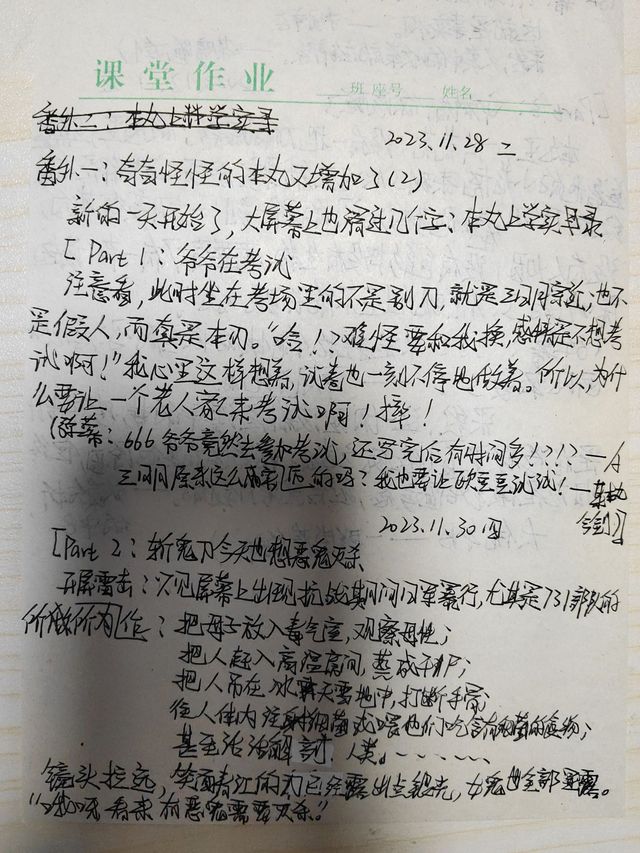 课堂作业 班 座号 姓名
番外二：本丸上学实录
2023.11.28 二
番外一：奇奇怪怪的本丸又增加了(2)
新的一天开始了，大屏幕上也滑过几个字：本丸上学实录
[Part 1：爷爷在考试
注意看，此时坐在考场里的不是别刀，就是三日月宗近，也不
是假人，而真是本刃。"哈！？难怪要和我换，感情是不想考
试啊！"我心里这样想着，试卷也一刻不停地做着。所以，为什
么要让一个老人家来考试啊！摔！
(弹幕：666爷爷竟然去参加考试，还写完后有时间多！？！？—A
三日月原来这么厉害的吗？我也要让欧豆豆试试！—
2023.11.30 四
[Part 2：斩鬼刀今天也想恶鬼灭杀
开屏雷击：只见屏幕上出现抗战期间日军暴行，尤其是731部队的
所做所为：
把母子放入毒气室，观察母性；
把人赶入高温房间，蒸成干尸；
把人吊在冰天雪地中，打断手骨；
往人体内注射细菌或喂他们吃含有细菌的食物；
甚至活活解剖人类。......
镜头拉远，笑面青江的刃已经露出点锐光，女鬼也全部显露。
"哎呀看来有恶鬼需要灭杀。"